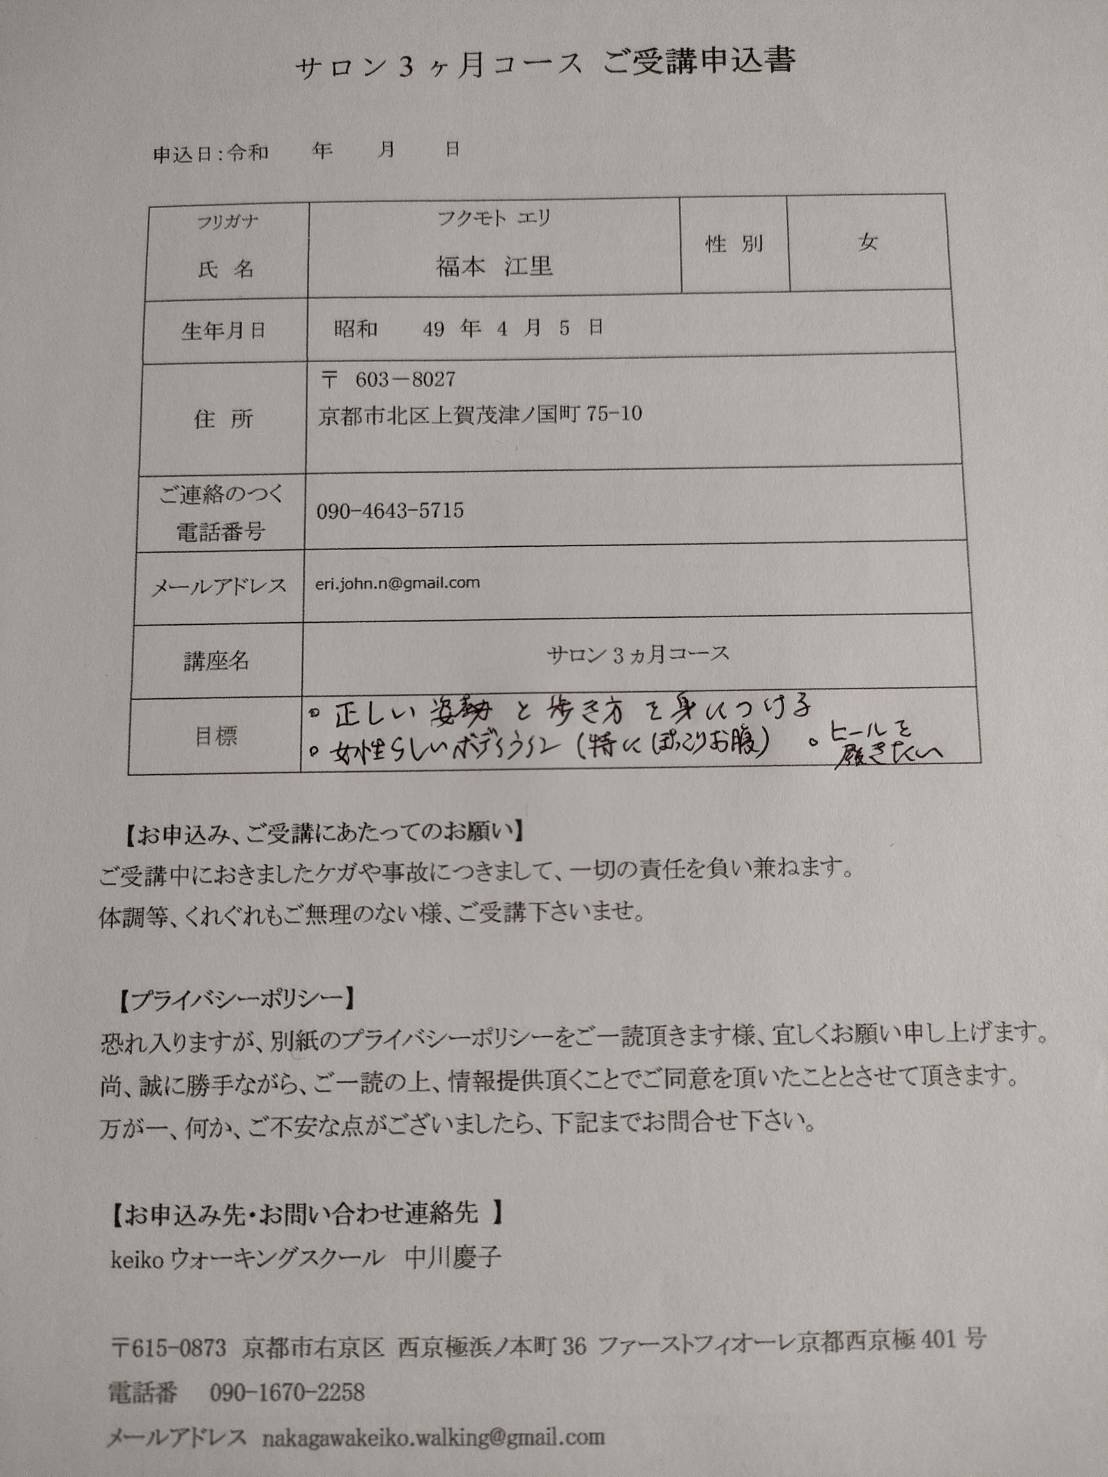 サロン3ヶ月コース ご受講申込書
申込日:令和 年 月 日
フリガナ フクモト エリ
氏 名 福本 江里 性 別 女
生年月日 昭和 49 年 4 月 5 日
〒 603－8027
住 所 京都市北区上賀茂津ノ国町 75-10
ご連絡のつく
電話番号 090-4643-5715
メールアドレス eri.john.n@gmail.com
講座名 サロン3ヵ月コース
目標
○ 正しい 姿勢 と 歩き方 を 身につける
○ 女性らしいボディライン (特に ぽっこりお腹) ○ ヒールを
履きたい
【お申込み、ご受講にあたってのお願い】
ご受講中におきましたケガや事故につきまして、一切の責任を負い兼ねます。
体調等、くれぐれもご無理のない様、ご受講下さいませ。
【プライバシーポリシー】
恐れ入りますが、別紙のプライバシーポリシーをご一読頂きます様、宜しくお願い申し上げます。
尚、誠に勝手ながら、ご一読の上、情報提供頂くことでご同意を頂いたこととさせて頂きます。
万が一、何か、ご不安な点がございましたら、下記までお問合せ下さい。
【お申込み先・お問い合わせ連絡先 】
keiko ウォーキングスクール 中川慶子
〒615-0873 京都市右京区 西京極浜ノ本町 36 ファーストフィオーレ京都西京極 401 号
電話番 090-1670-2258
メールアドレス nakagawakeiko.walking@gmail.com